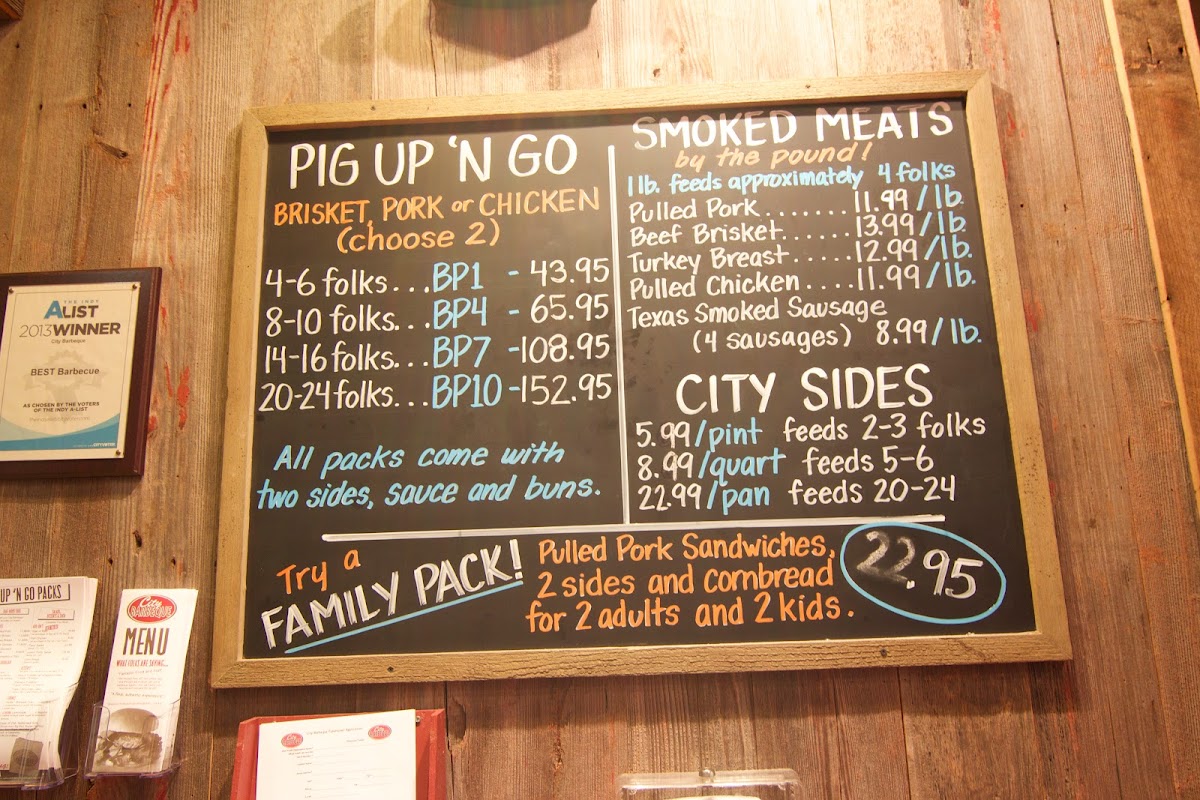 PIG UP 'N GO
BRISKET, PORK or CHICKEN
(choose 2)
4-6 folks...BP1 - 43.95
8-10 folks...BP4 - 65.95
14-16 folks...BP7 -108.95
20-24 folks...BP10 -152.95
All packs come with
two sides, sauce and buns.
SMOKED MEATS
by the pound!
1 lb. feeds approximately 4 folks
Pulled Pork.......11.99/lb.
Beef Brisket......13.99/lb.
Turkey Breast.....12.99/lb.
Pulled Chicken....11.99/lb.
Texas Smoked Sausage
(4 sausages) 8.99/lb.
CITY SIDES
5.99/pint feeds 2-3 folks
8.99/quart feeds 5-6
22.99/pan feeds 20-24
Try a
FAMILY PACK!
Pulled Pork Sandwiches,
2 sides and cornbread
for 2 adults and 2 kids.
22.95
THE INDY
A LIST
2013 WINNER
City Barbeque
BEST Barbecue
AS CHOSEN BY THE VOTERS
OF THE INDY A-LIST
UP 'N GO PACKS
City
BARBEQUE
MENU
WHAT FOLKS ARE SAYING...